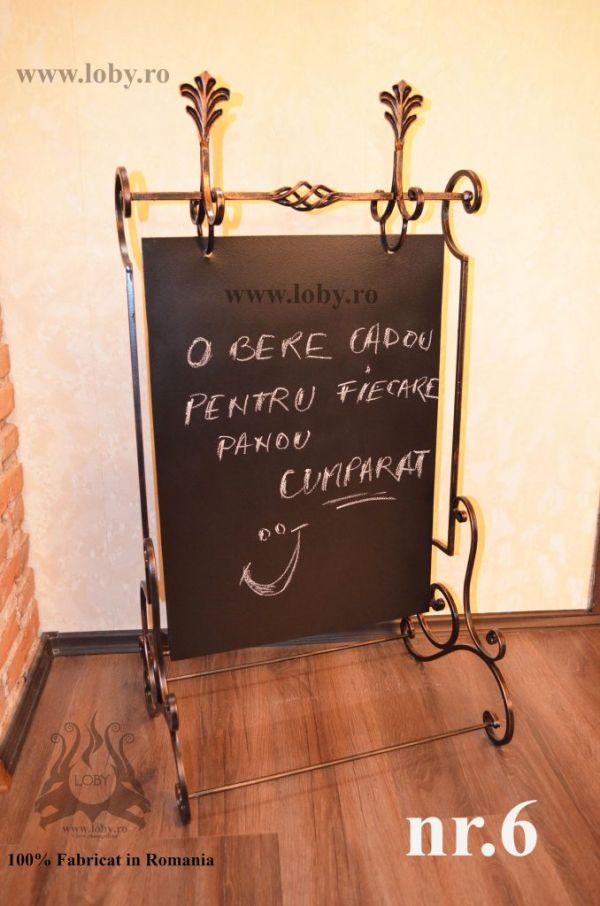 www.loby.ro
www.loby.ro
O BERE CADOU
PENTRU FIECARE
PANOU
CUMPARAT
LOBY
www.loby.ro
nr.6
100% Fabricat in Romania